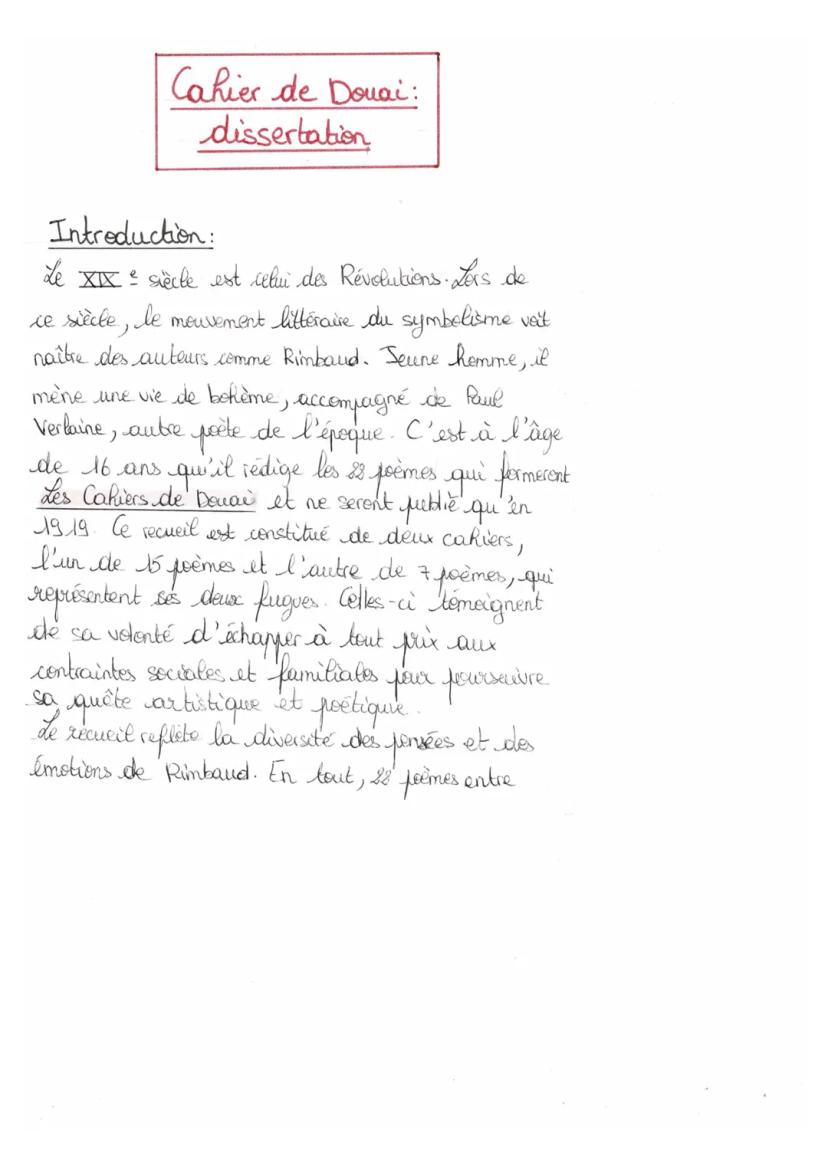 Cahier de Douai:
dissertation
Introduction:
Le XIX e siècle est celui des Révolutions. Lors de
ce siècle, le mouvement littéraire du symbolisme voit
naître des auteurs comme Rimbaud. Jeune homme, il
mène une vie de bohème, accompagné de Paul
Verlaine, autre poète de l'époque. C'est à l'âge
de 16 ans qu'il rédige les 22 poèmes qui formeront
Les Cahiers de Douai et ne seront publié qu'en
1919. Ce recueil est constitué de deux cahiers,
l'un de 15 poèmes et l'autre de 7 poèmes, qui
représentent ses deux fugues. Celles-ci témoignent
de sa volonté d'échapper à tout prix aux
contraintes sociales et familiales pour poursuivre
sa quête artistique et poétique.
Le recueil reflète la diversité des pensées et des
émotions de Rimbaud. En tout, 22 poèmes entre